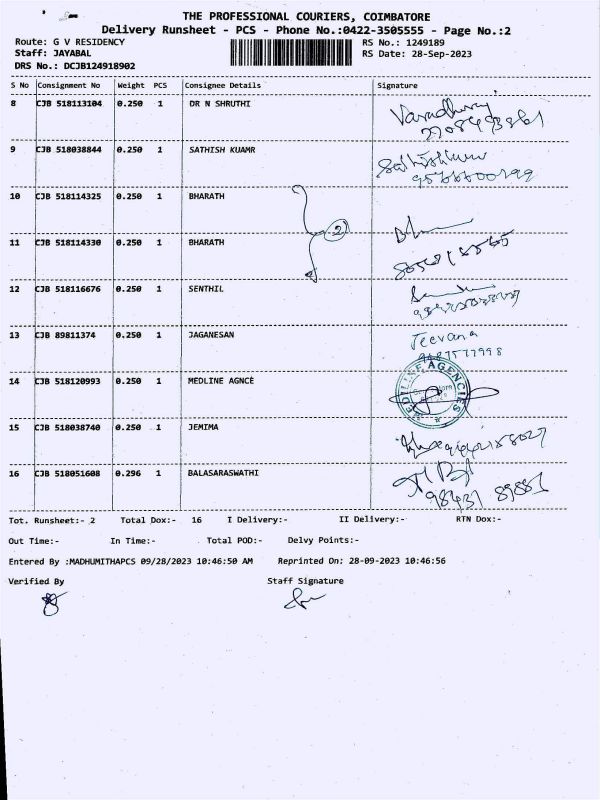 THE PROFESSIONAL COURIERS, COIMBATORE
Delivery Runsheet - PCS - Phone No.:0422-3505555 - Page No.:2
Route: G V RESIDENCY RS No.: 1249189
Staff: JAYABAL RS Date: 28-Sep-2023
DRS No.: DCJB124918902
S No Consignment No Weight PCS Consignee Details Signature
8 CJB 518113104 0.250 1 DR N SHRUTHI
9 CJB 518038844 0.250 1 SATHISH KUAMR
10 CJB 518114325 0.250 1 BHARATH
2
11 CJB 518114330 0.250 1 BHARATH
12 CJB 518116676 0.250 1 SENTHIL
13 CJB 89811374 0.250 1 JAGANESAN Jeevana
14 CJB 518120993 0.250 1 MEDLINE AGNCE MEDILINE AGENCIES
15 CJB 518038740 0.250 1 JEMIMA
16 CJB 518051608 0.296 1 BALASARASWATHI
98431 89881
Tot. Runsheet:- 2 Total Dox:- 16 I Delivery:- II Delivery:- RTN Dox:-
Out Time:- In Time:- Total POD:- Delvy Points:-
Entered By :MADHUMITHAPCS 09/28/2023 10:46:50 AM Reprinted On: 28-09-2023 10:46:56
Verified By Staff Signature